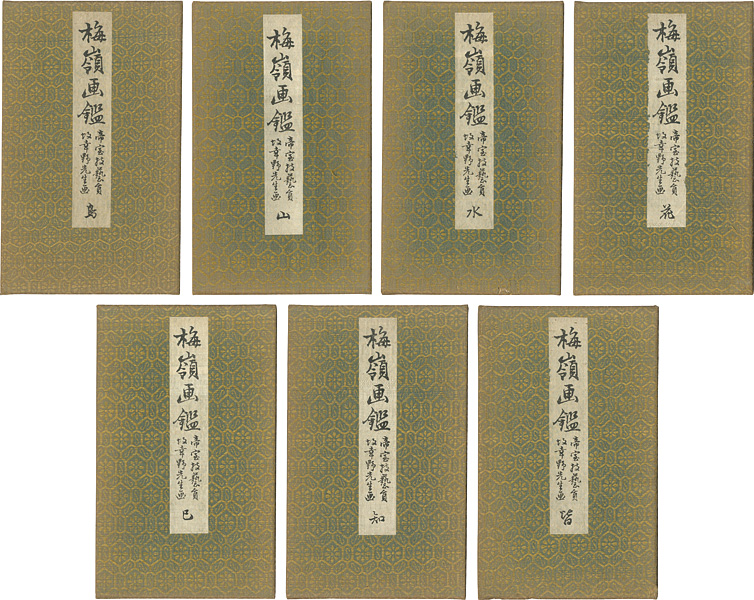 梅嶺画鑑
帝室技藝員
故幸野先生画
鳥
梅嶺画鑑
帝室技藝員
故幸野先生画
山
梅嶺画鑑
帝室技藝員
故幸野先生画
水
梅嶺画鑑
帝室技藝員
故幸野先生画
花
梅嶺画鑑
帝室技藝員
故幸野先生画
己
梅嶺画鑑
帝室技藝員
故幸野先生画
知
梅嶺画鑑
帝室技藝員
故幸野先生画
皆